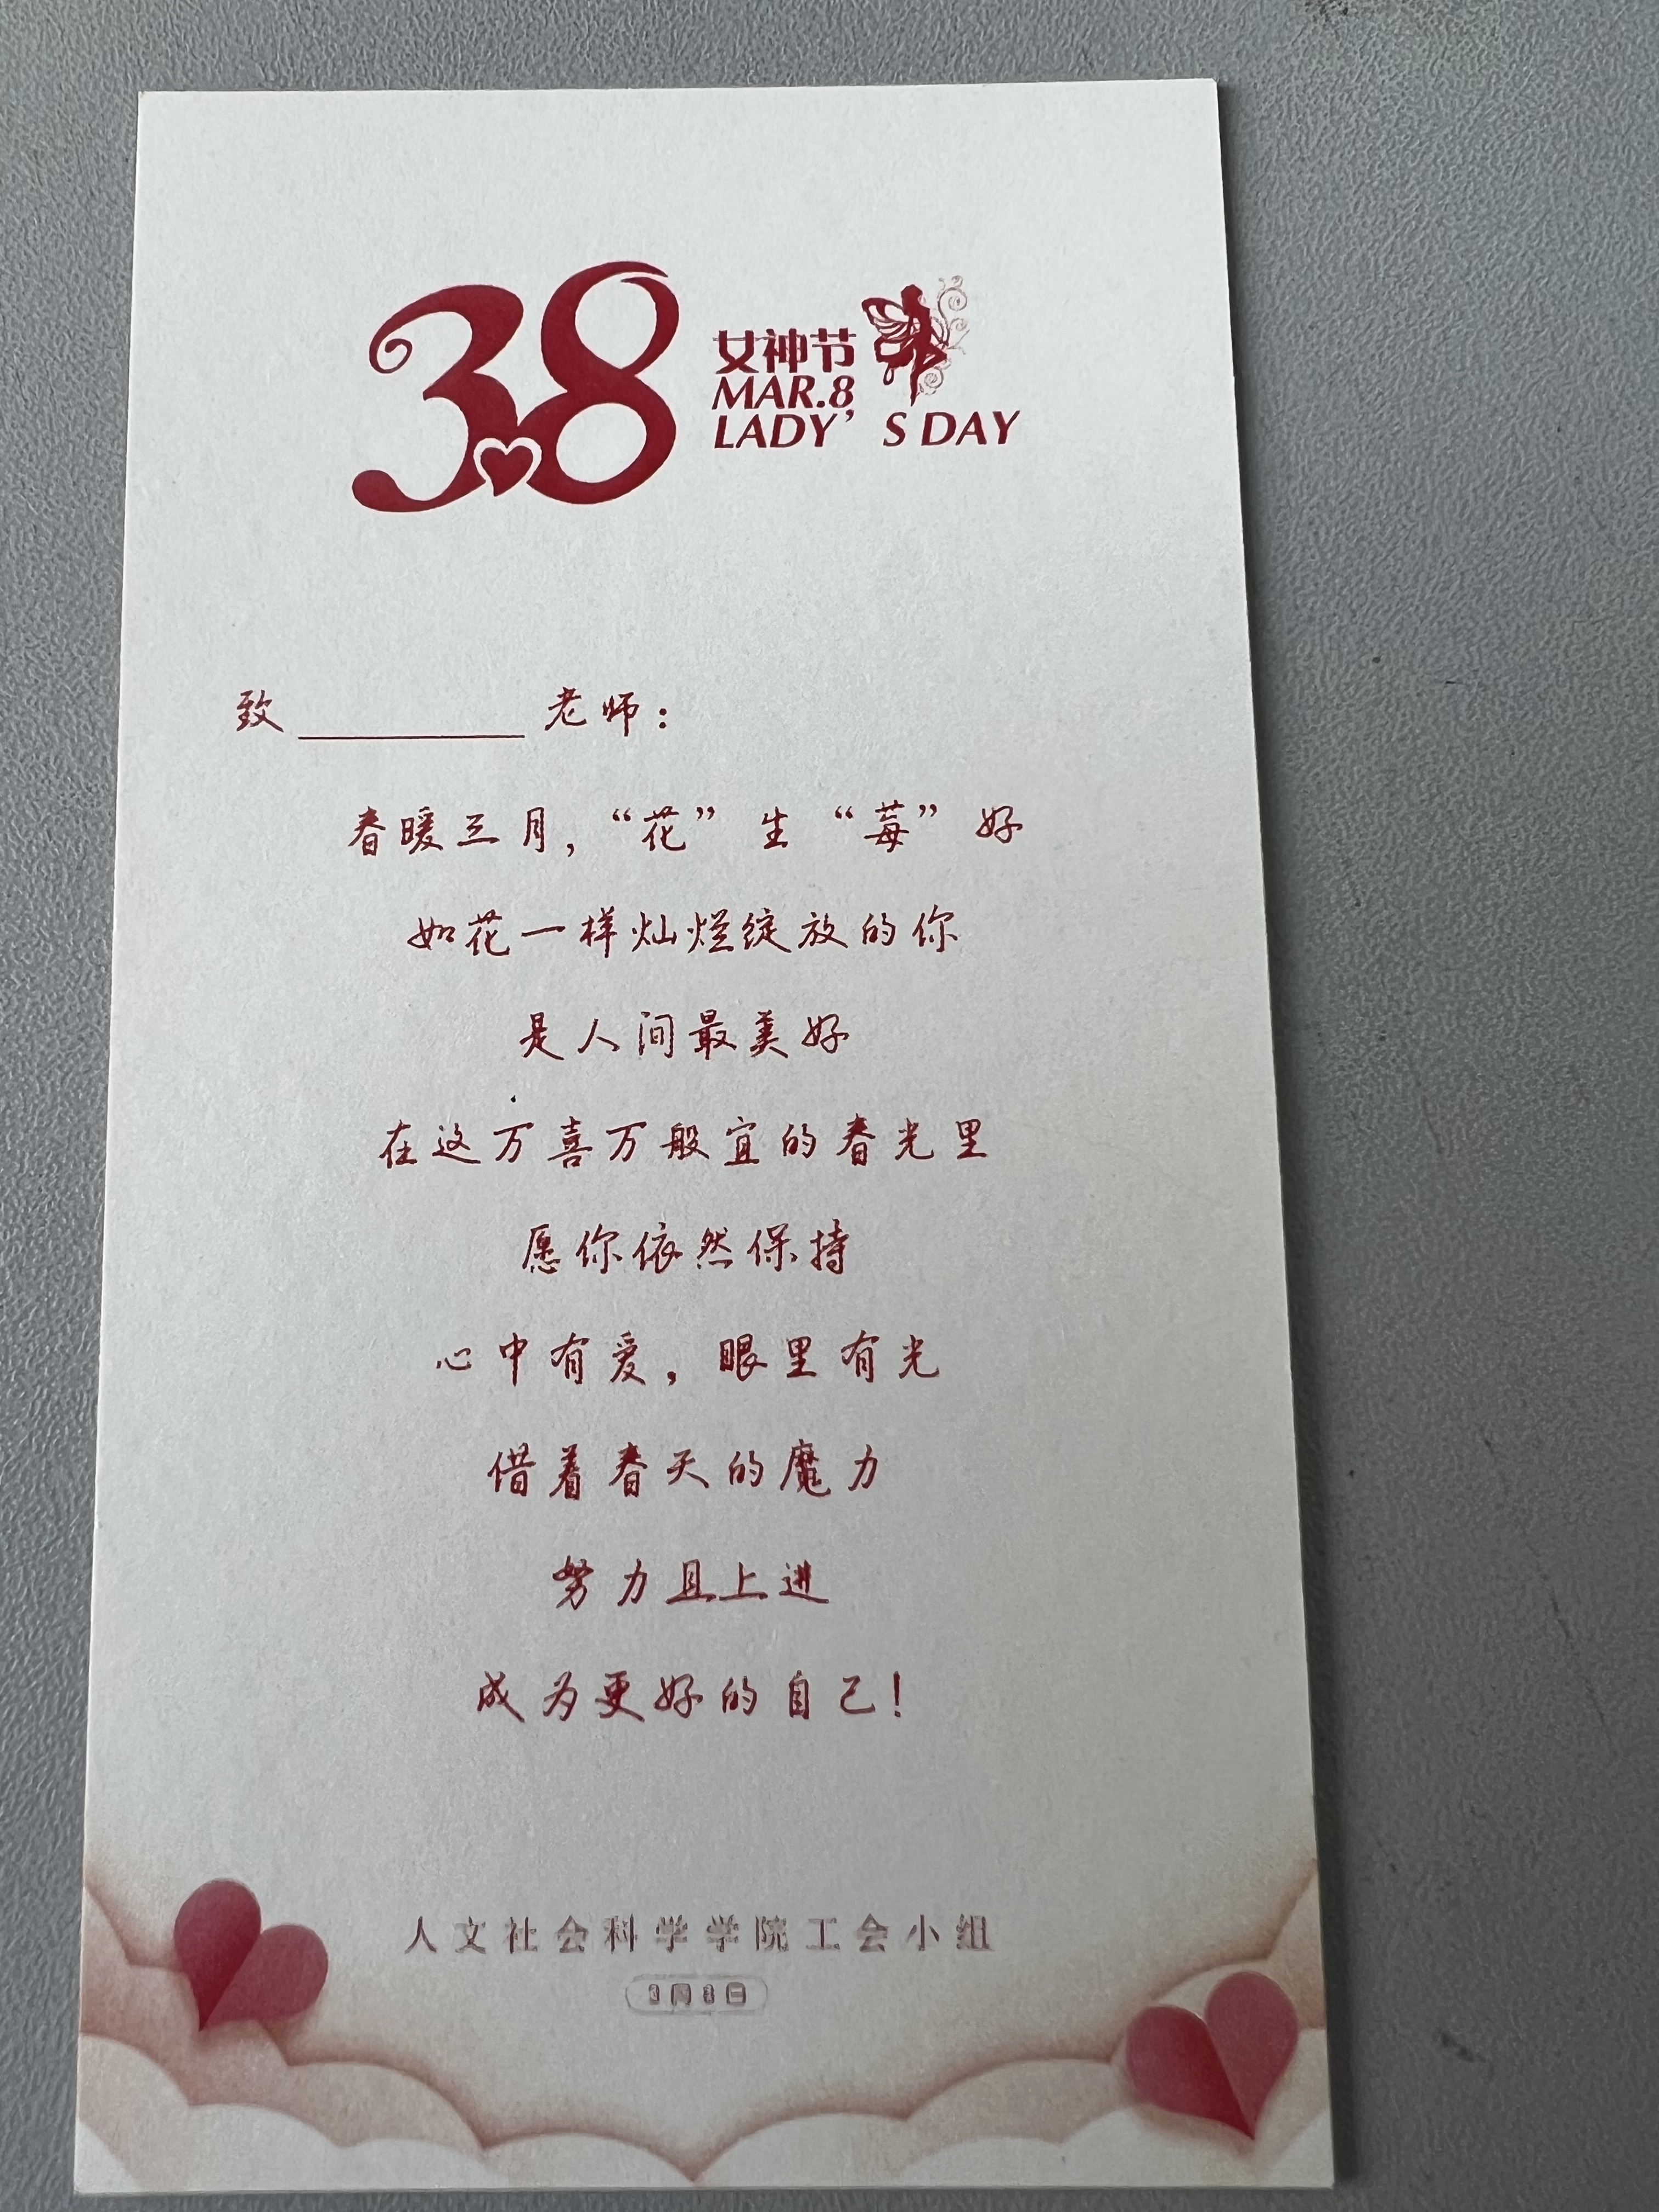 38
女神节
MAR.8
LADY’S DAY
致________老师：
春暖三月，“花”生“莓”好
如花一样灿烂绽放的你
是人间最美好
在这万喜万般宜的春光里
愿你依然保持
心中有爱，眼里有光
借着春天的魔力
努力且上进
成为更好的自己！
人文社会科学学院工会小组
3月8日